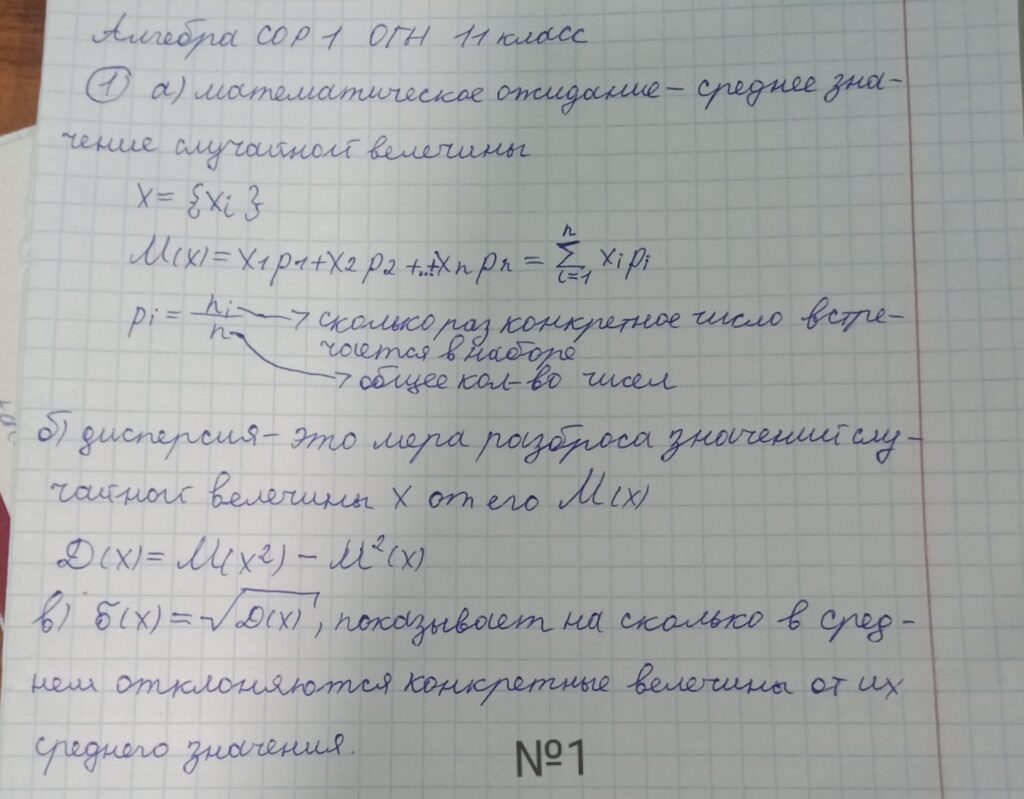 Алгебра СОР 1 ОГН 11 класс
① а) математическое ожидание – среднее зна-
чение случайной велечины
X = {xi}
M(x) = x1p1 + x2p2 + ... + xnpn = n Σ i=1 xipi
pi = ni/n → сколько раз конкретное число встре-
чается в наборе
→ общее кол-во чисел
б) дисперсия – это мера разброса значений слу-
чайной велечины X от его M(x)
D(x) = M(x²) – M²(x)
в) б(x) = √D(x), показывает на сколько в сред-
нем отклоняются конкретные велечины от их
среднего значения.
№1